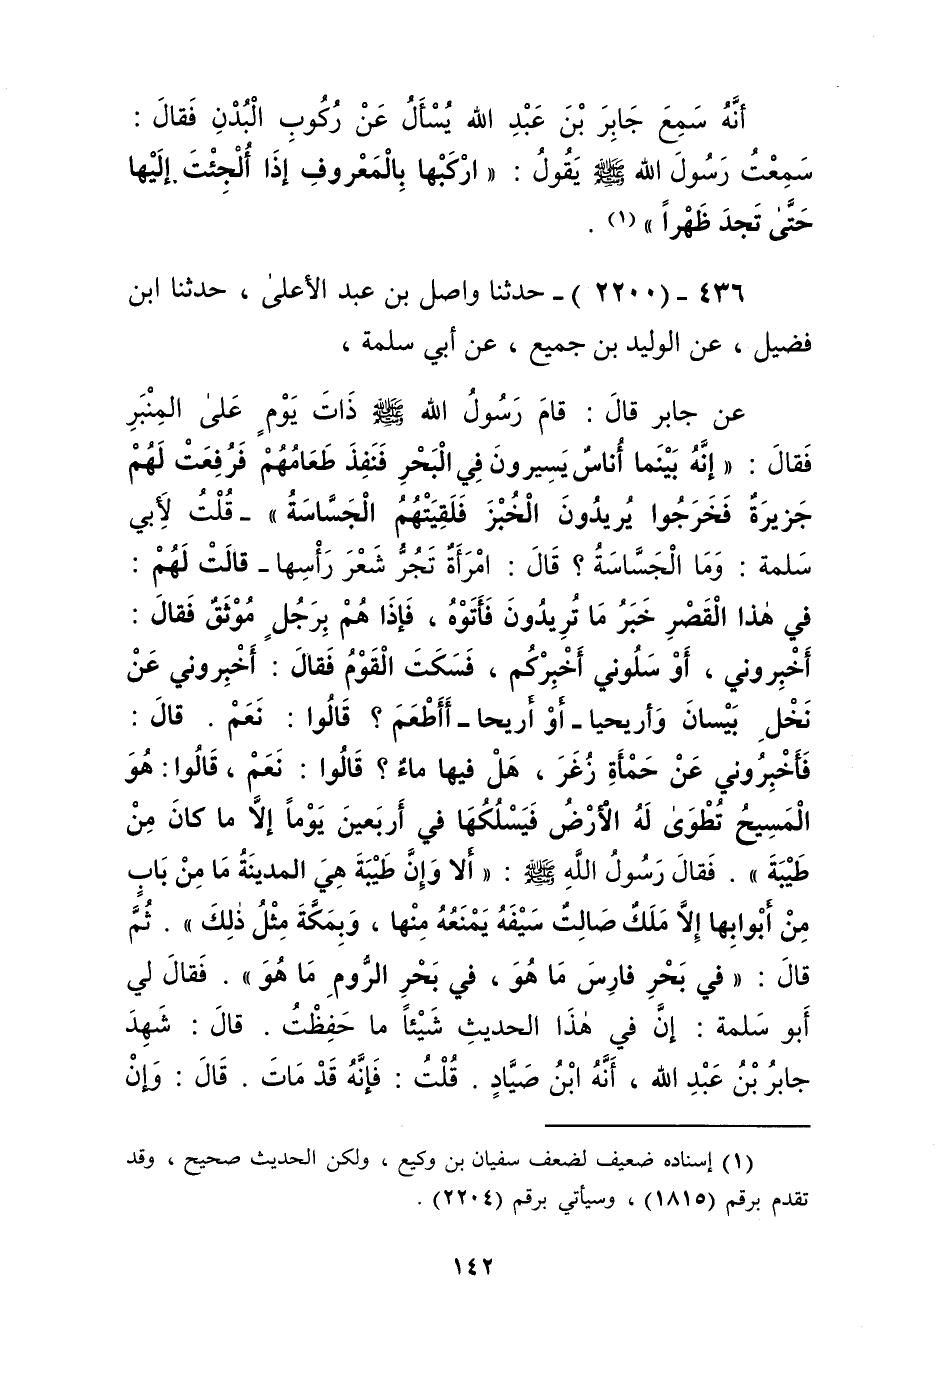 أَنَّهُ سَمِعَ جَابِرَ بْنَ عَبْدِ الله يُسْأَلُ عَنْ رُكُوبِ الْبُدْنِ فَقالَ :
سَمِعْتُ رَسُولَ الله ﷺ يَقُولُ : « ارْكَبْها بِالْمَعْروفِ إذَا أُلْجِئْتَ إلَيْها
حَتَّىٰ تَجدَ ظَهْراً » (١) .
٤٣٦ ـ (٢٢٠٠ ) ـ حدثنا واصل بن عبد الأعلىٰ ، حدثنا ابن
فضيل ، عن الوليد بن جميع ، عن أبي سلمة ،
عن جابر قالَ : قامَ رَسُولُ الله ﷺ ذَاتَ يَوْمٍ عَلىٰ المِنْبَرِ
فَقالَ : « إنَّهُ بَيْنَما أُناسٌ يَسِيرونَ فِي الْبَحْرِ فَنَفِذَ طَعَامُهُمْ فَرُفِعَتْ لَهُمْ
جَزيرَةٌ فَخَرَجُوا يُريدُونَ الْخُبْزَ فَلَقِيَتْهُمُ الْجَسَّاسَةُ » ـ قُلْتُ لِأَبي
سَلمة : وَمَا الْجَسَّاسَةُ ؟ قَالَ : امْرَأَةٌ تَجُرُّ شَعْرَ رَأْسِها ـ قالَتْ لَهُمْ :
في هٰذا الْقَصْرِ خَبَرُ مَا تُرِيدُونَ فَأَتَوْهُ ، فَإذَا هُمْ بِرَجُلٍ مُوْثَقٌ فَقالَ :
أَخْبِروني ، أَوْ سَلُوني أَخْبِرْكُم ، فَسَكَتَ الْقَوْمُ فَقالَ : أَخْبِروني عَنْ
نَخْلِ بَيْسانَ وَأريحيا ـ أَوْ أَريحا ـ أَأَطْعَمَ ؟ قَالُوا : نَعَمْ . قالَ :
فَأَخْبِرُوني عَنْ حَمْأَةِ زُغَرَ ، هَلْ فيها ماءٌ ؟ قَالُوا : نَعَمْ ، قَالُوا : هُوَ
الْمَسِيحُ تُطْوَىٰ لَهُ الْأَرْضُ فَيَسْلُكُهَا في أَربَعينَ يَوْماً إلَّا ما كانَ مِنْ
طَيْبَةَ » . فَقالَ رَسُولُ اللَّهِ ﷺ : « أَلا وَإنَّ طَيْبَةَ هِيَ المدينَةُ مَا مِنْ بَابٍ
مِنْ أَبْوابِها إلاَّ مَلَكٌ صَالِتٌ سَيْفَهُ يَمْنَعُهُ مِنْها ، وَبِمَكَّةَ مِثْلُ ذٰلِكَ » . ثُمَّ
قالَ : « في بَحْرِ فارِسَ مَا هُوَ ، في بَحْرِ الرُّومِ مَا هُوَ » . فَقالَ لي
أَبو سَلمة : إنَّ في هٰذَا الحديثِ شَيْئاً ما حَفِظْتُ . قالَ : شَهِدَ
جابرُ بْنُ عَبْدِ الله ، أَنَّهُ ابْنُ صَيَّادٍ . قُلْتُ : فَإنَّهُ قَدْ مَاتَ . قَالَ : وَإنْ
(١) إسناده ضعيف لضعف سفيان بن وكيع ، ولكن الحديث صحيح ، وقد
تقدم برقم (١٨١٥) ، وسيأتي برقم (٢٢٠٤) .
١٤٢